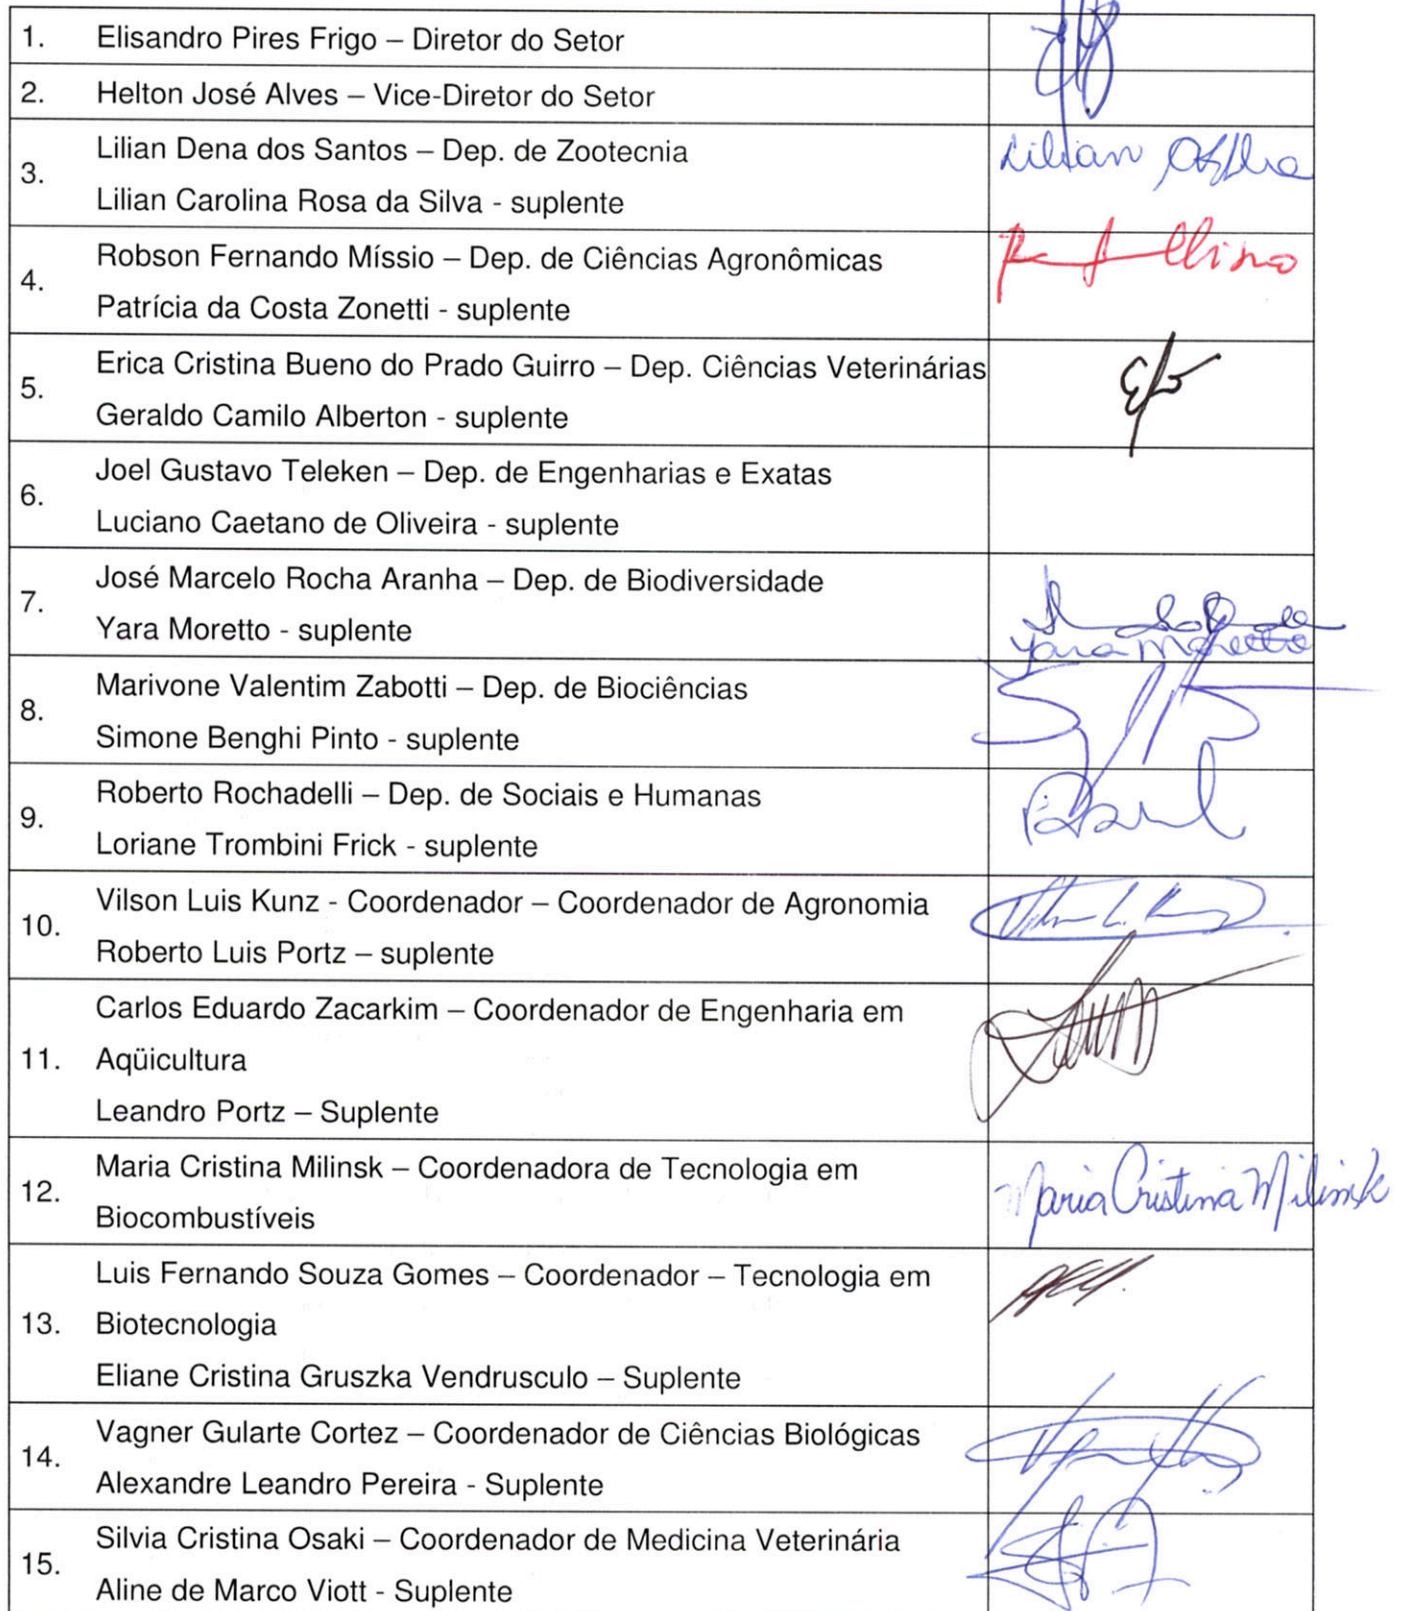 1. Elisandro Pires Frigo – Diretor do Setor
2. Helton José Alves – Vice-Diretor do Setor
3. Lilian Dena dos Santos – Dep. de Zootecnia
Lilian Carolina Rosa da Silva - suplente
Lilian
4. Robson Fernando Míssio – Dep. de Ciências Agronômicas
Patrícia da Costa Zonetti - suplente
5. Erica Cristina Bueno do Prado Guirro – Dep. Ciências Veterinárias
Geraldo Camilo Alberton - suplente
6. Joel Gustavo Teleken – Dep. de Engenharias e Exatas
Luciano Caetano de Oliveira - suplente
7. José Marcelo Rocha Aranha – Dep. de Biodiversidade
Yara Moretto - suplente
Yara Moretto
8. Marivone Valentim Zabotti – Dep. de Biociências
Simone Benghi Pinto - suplente
9. Roberto Rochadelli – Dep. de Sociais e Humanas
Loriane Trombini Frick - suplente
10. Vilson Luis Kunz - Coordenador – Coordenador de Agronomia
Roberto Luis Portz – suplente
11. Carlos Eduardo Zacarkim – Coordenador de Engenharia em
Aqüicultura
Leandro Portz – Suplente
12. Maria Cristina Milinsk – Coordenadora de Tecnologia em
Biocombustíveis
Maria Cristina Milinsk
13. Luis Fernando Souza Gomes – Coordenador – Tecnologia em
Biotecnologia
Eliane Cristina Gruszka Vendrusculo – Suplente
14. Vagner Gularte Cortez – Coordenador de Ciências Biológicas
Alexandre Leandro Pereira - Suplente
15. Silvia Cristina Osaki – Coordenador de Medicina Veterinária
Aline de Marco Viott - Suplente